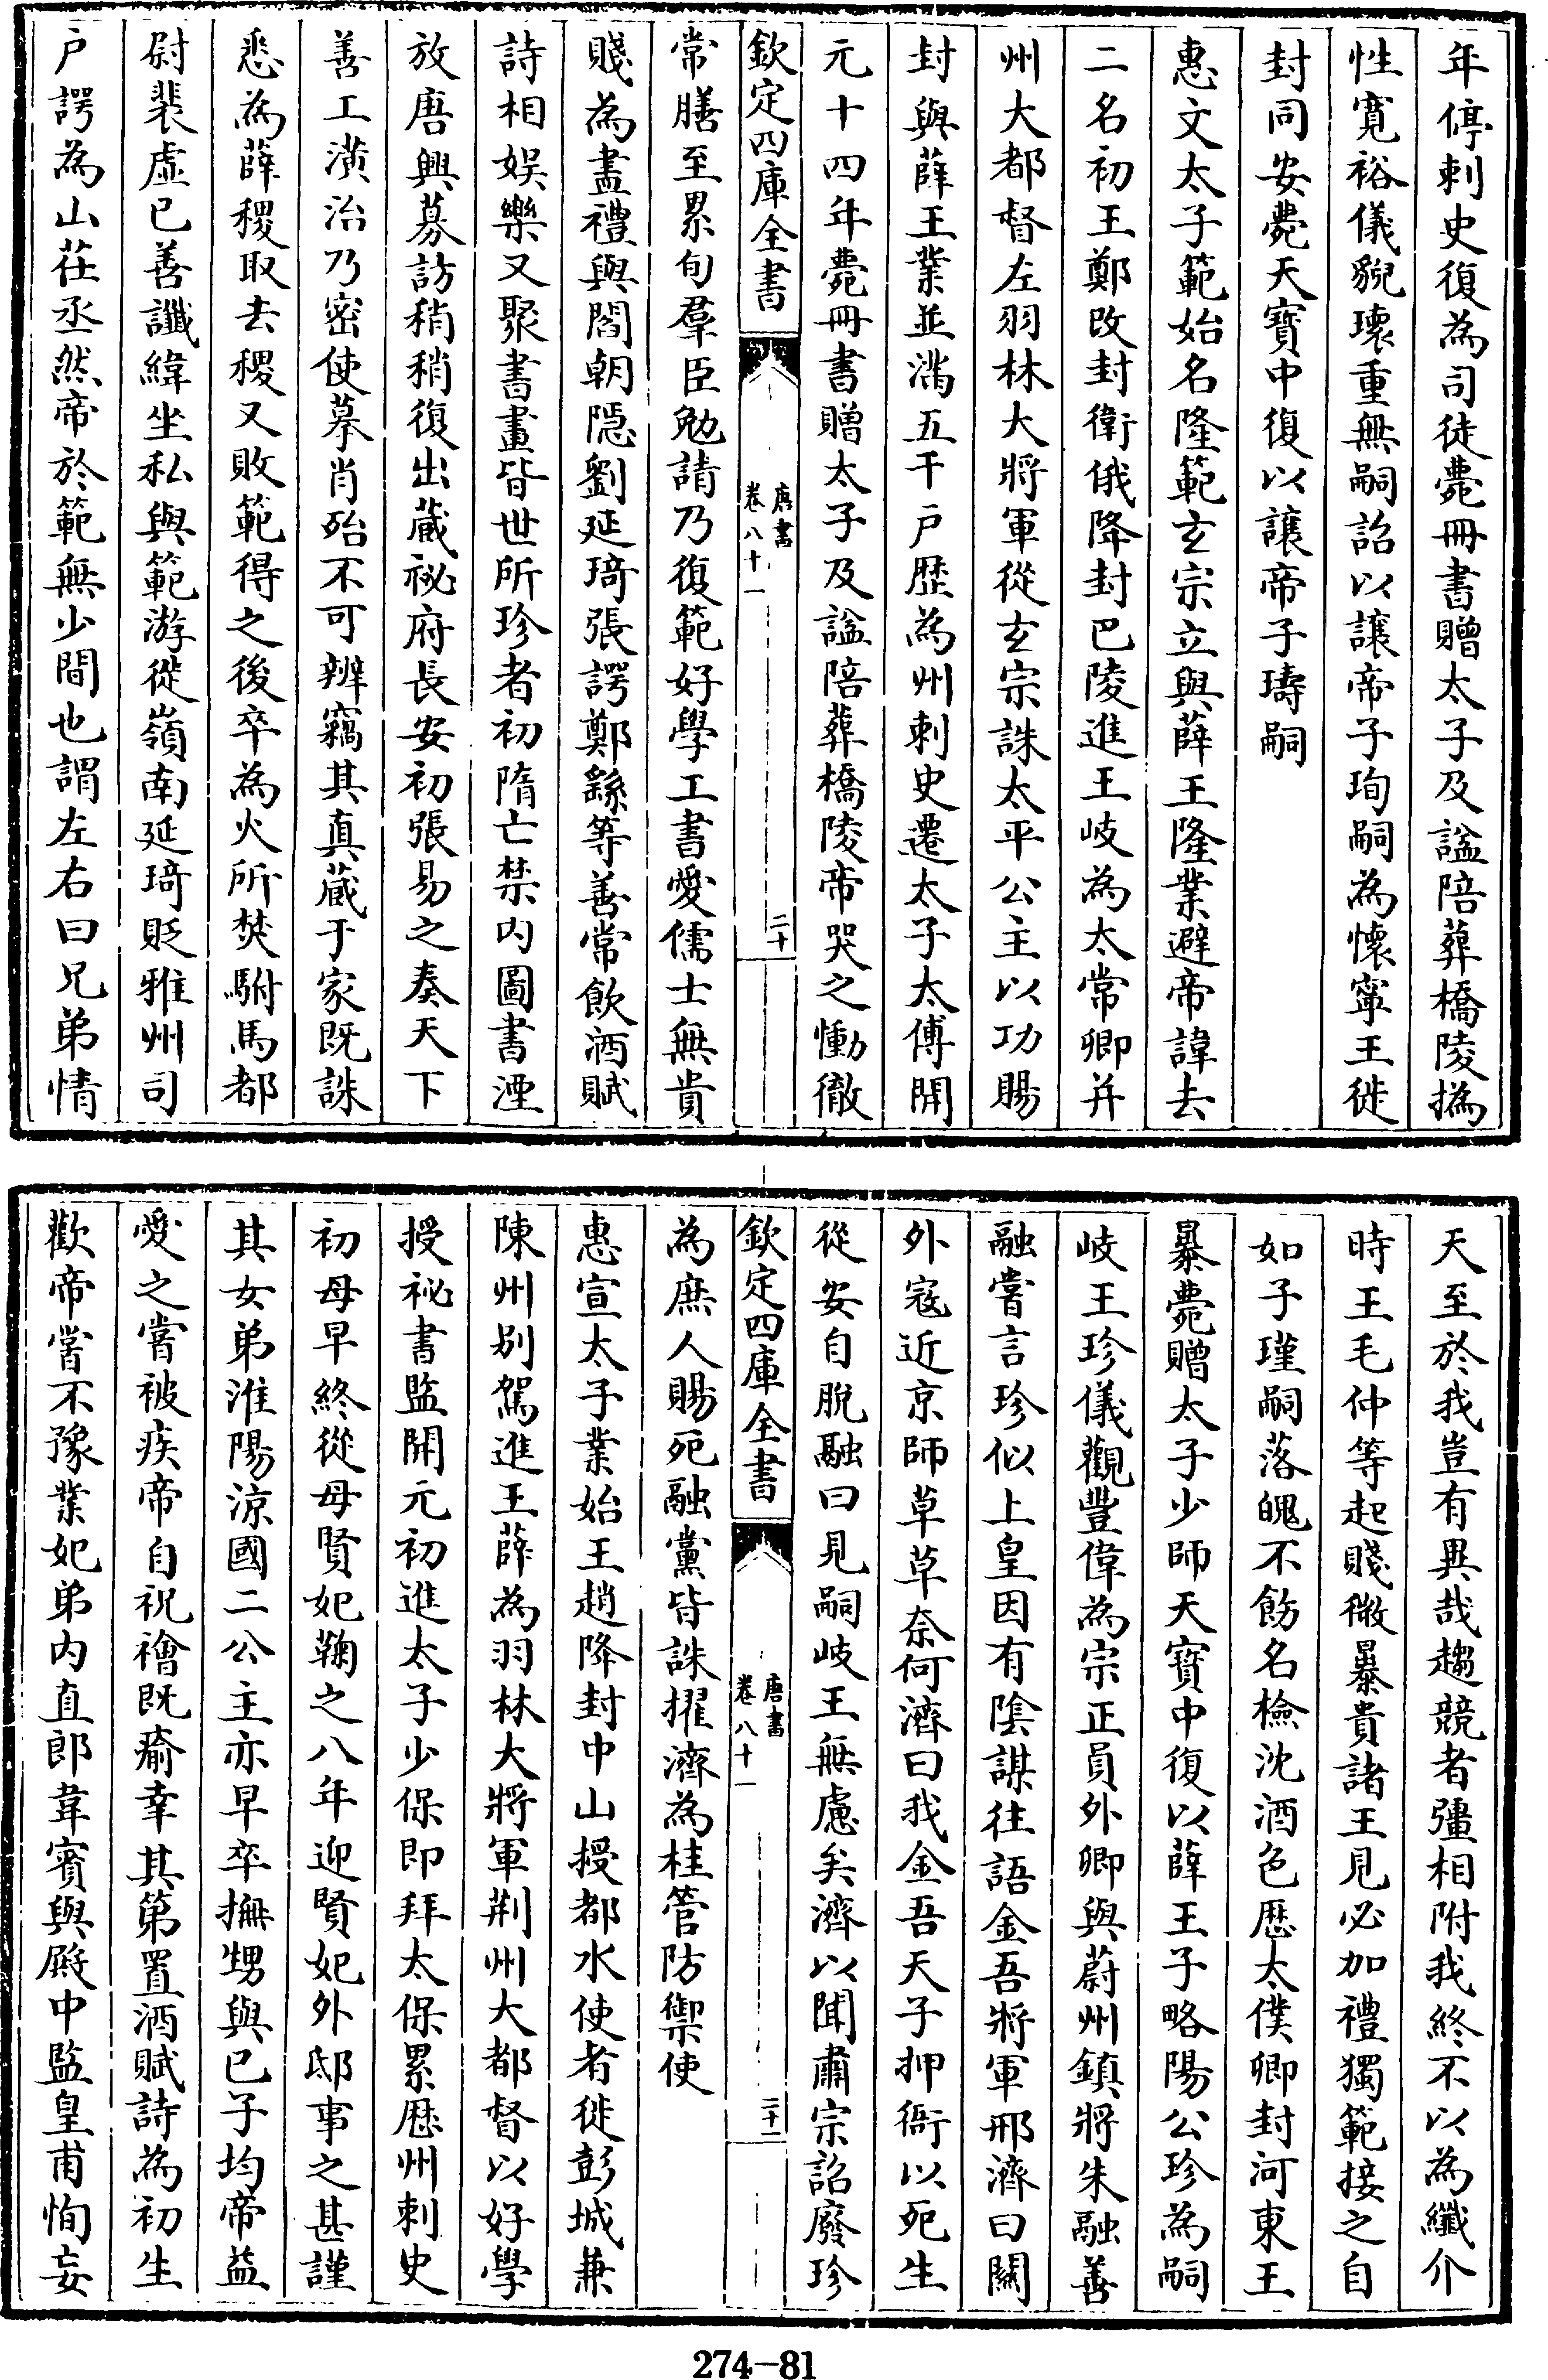 年停刺史復為司徒薨冊書贈太子及謚陪葬橋陵撝
性寛裕儀貌瓌重無嗣詔以讓帝子珣嗣為懷寧王徙
封同安薨天寶中復以讓帝子璹嗣
惠文太子範始名隆範玄宗立與薛王隆業避帝諱去
二名初王鄭改封衛俄降封巴陵進王岐為太常卿并
州大都督左羽林大將軍從玄宗誅太平公主以功賜
封與薛王業並滿五千户歴為州刺史遷太子太傅開
元十四年薨冊書贈太子及謚陪葬橋陵帝哭之慟徹
欽定四庫全書
唐書
卷八十一
二十
常膳至累旬羣臣勉請乃復範好學工書愛儒士無貴
賤為盡禮與閻朝隠劉延琦張諤鄭繇等善常飲酒賦
詩相娱樂又聚書畫皆世所珍者初隋亡禁内圖書湮
放唐興募訪稍稍復出蔵祕府長安初張易之奏天下
善工潢治乃密使摹肖殆不可辨竊其真蔵于家既誅
悉為薛稷取去稷又敗範得之後卒為火所焚駙馬都
尉裴虚已善讖緯坐私與範游徙嶺南延琦貶雅州司
户諤為山茌丞然帝於範無少間也謂左右曰兄弟情
天至於我豈有異哉趨競者彊相附我終不以為纖介
時王毛仲等起賤微暴貴諸王見必加禮獨範接之自
如子瑾嗣落魄不飭名檢沈酒色歴太僕卿封河東王
暴薨贈太子少師天寶中復以薛王子略陽公珍為嗣
岐王珍儀觀豐偉為宗正員外卿與蔚州鎮將朱融善
融嘗言珍似上皇因有陰謀往語金吾將軍邢濟曰關
外寇近京師草草奈何濟曰我金吾天子押衙以死生
從安自脱融曰見嗣岐王無慮矣濟以聞肅宗詔廢珍
欽定四庫全書
唐書
卷八十一
二十一
為庶人賜死融黨皆誅擢濟為桂管防禦使
惠宣太子業始王趙降封中山授都水使者徙彭城兼
陳州别駕進王薛為羽林大將軍荆州大都督以好學
授祕書監開元初進太子少保即拜太保累歴州刺史
初母早終從母賢妃鞠之八年迎賢妃外邸事之甚謹
其女弟淮陽涼國二公主亦早卒撫甥與已子均帝益
愛之嘗被疾帝自祝禬既瘉幸其第置酒賦詩為初生
歡帝嘗不豫業妃弟内直郎韋賓與殿中監皇甫恂妄
274-81